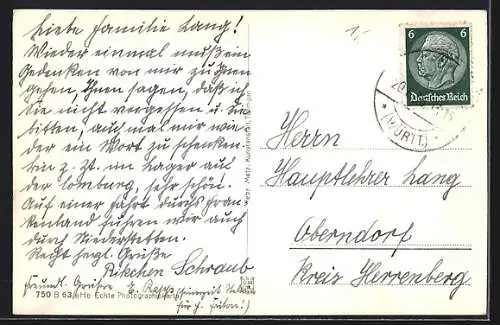 Liebe Familie Lang!
Wieder einmal muß ein
Gedenken von mir zu Ihnen
gehen, Ihnen sagen, daß ich
Sie nicht vergessen! u. Sie
bitten, auch mal mir wie-
der ein Wort zu schenken.
Bin z. Zt. im Lager auf
der Comburg, sehr schön.
Auf einer Fahrt durchs Fran-
kenland fuhren wir auch
durch Niederstetten.
Recht herzl. Grüße
Rikchen Schraub
Freundl. Grüße E.
750 B 63 Echte Photographie
6 6
Deutsches Reich
(WÜRTT.)
Herrn
Hauptlehrer Lang
Oberndorf
Kreis Herrenberg